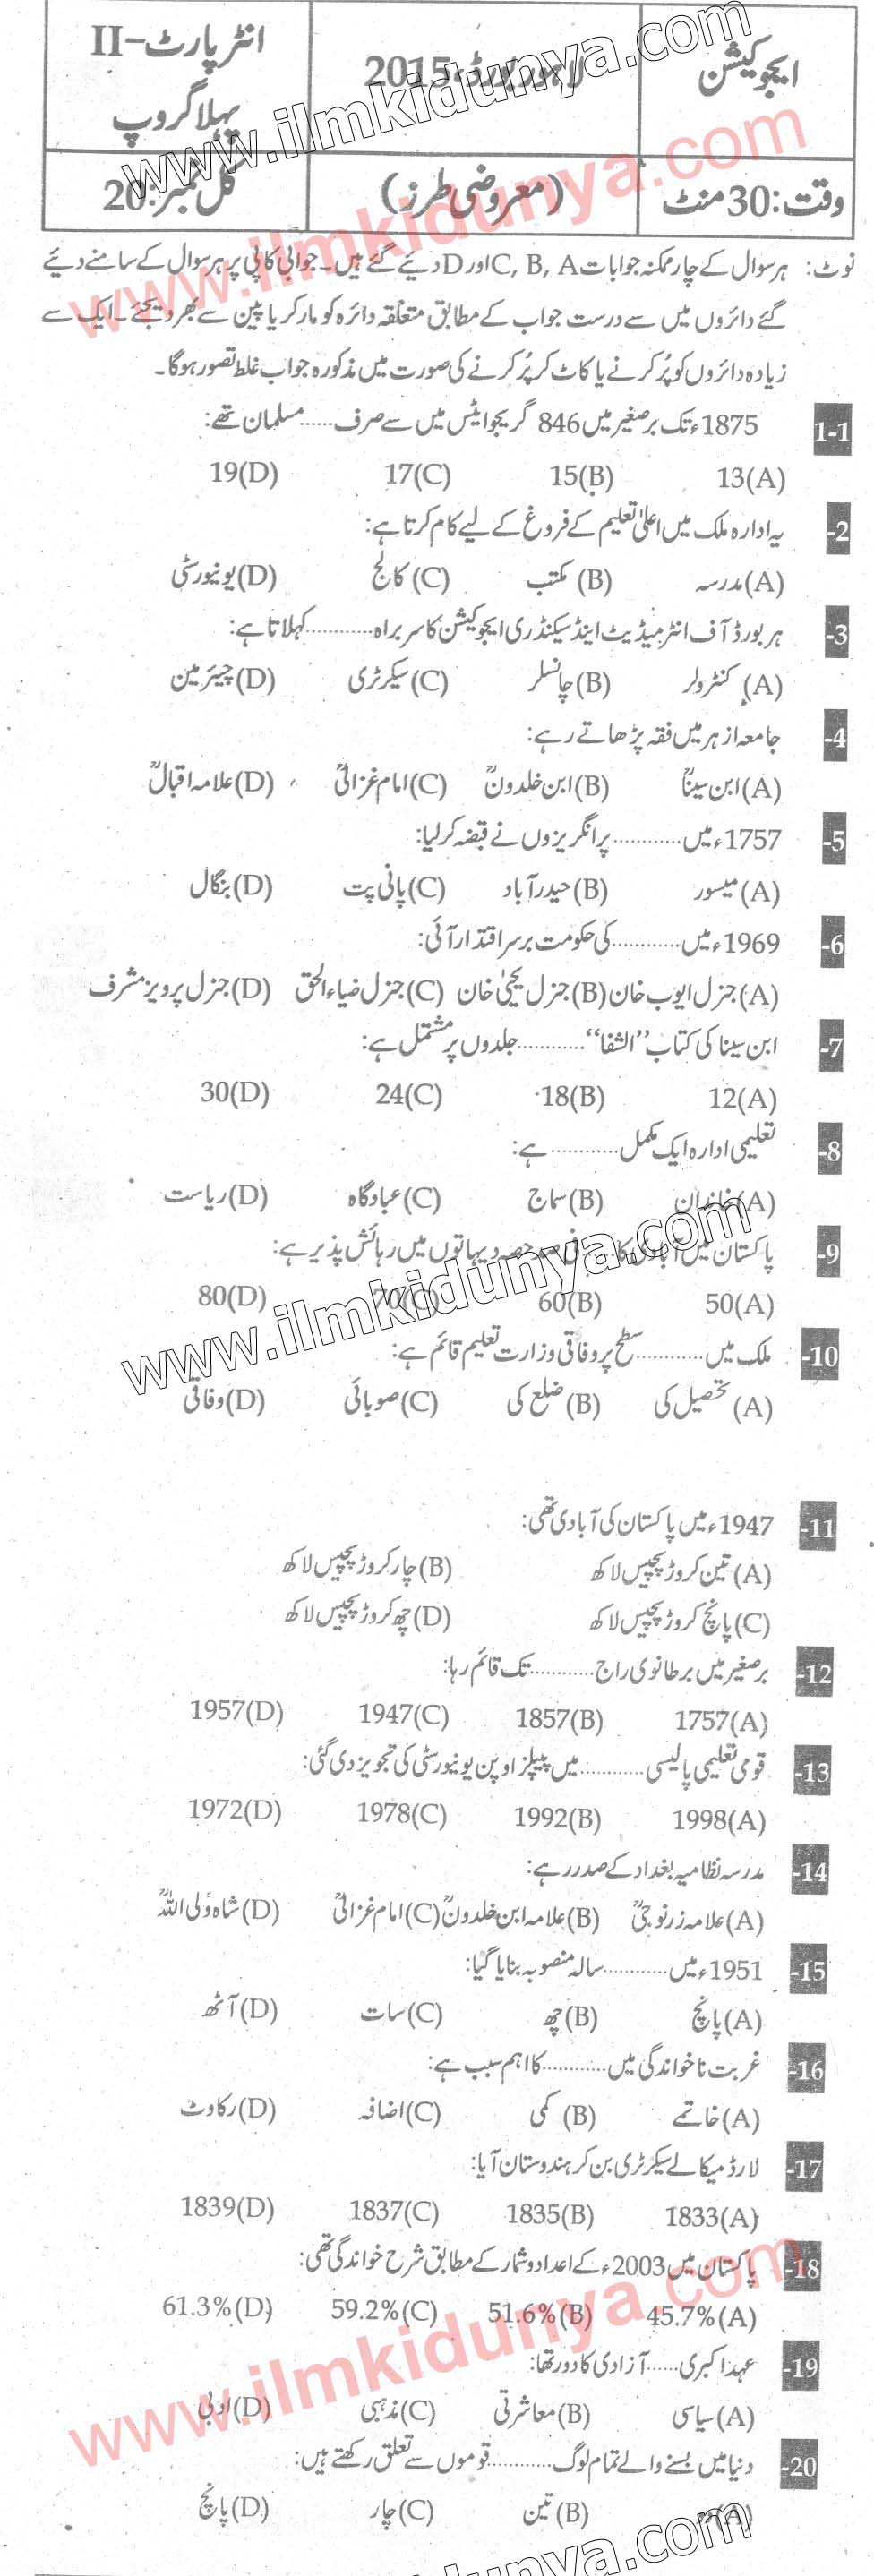 ایجوکیشن
لاہور بورڈ، 2015
انٹر پارٹ-II
پہلا گروپ
وقت: 30 منٹ
(معروضی طرز)
کل نمبر: 20
نوٹ: ہر سوال کے چار ممکنہ جوابات C, B, A اور D دیئے گئے ہیں۔ جوابی کاپی پر ہر سوال کے سامنے دیئے
گئے دائروں میں سے درست جواب کے مطابق متعلقہ دائرہ کو مارکر یا پین سے بھر دیجئے۔ ایک سے
زیادہ دائروں کو پُر کرنے یا کاٹ کر پُر کرنے کی صورت میں مذکورہ جواب غلط تصور ہوگا۔
1-1 1875ء تک برصغیر میں 846 گریجوایٹس میں سے صرف ...... مسلمان تھے:
(A) 13 (B) 15 (C) 17 (D) 19
-2 یہ ادارہ ملک میں اعلیٰ تعلیم کے فروغ کے لیے کام کرتا ہے:
(A) مدرسہ (B) مکتب (C) کالج (D) یونیورسٹی
-3 ہر بورڈ آف انٹرمیڈیٹ اینڈ سیکنڈری ایجوکیشن کا سربراہ ............ کہلاتا ہے:
(A) کنٹرولر (B) چانسلر (C) سیکرٹری (D) چیئرمین
-4 جامعہ ازہر میں فقہ پڑھاتے رہے:
(A) ابن سیناؒ (B) ابن خلدونؒ (C) امام غزالیؒ (D) علامہ اقبالؒ
-5 1757ء میں ............ پر انگریزوں نے قبضہ کر لیا:
(A) میسور (B) حیدر آباد (C) پانی پت (D) بنگال
-6 1969ء میں ............ کی حکومت برسر اقتدار آئی:
(A) جنرل ایوب خان (B) جنرل یحییٰ خان (C) جنرل ضیاء الحق (D) جنرل پرویز مشرف
-7 ابن سینا کی کتاب ”الشفا“ ............ جلدوں پر مشتمل ہے:
(A) 12 (B) 18 (C) 24 (D) 30
-8 تعلیمی ادارہ ایک مکمل ............ ہے:
(A) خاندان (B) سماج (C) عبادگاہ (D) ریاست
-9 پاکستان میں آبادی کا ...... فی صد حصہ دیہاتوں میں رہائش پذیر ہے:
(A) 50 (B) 60 (C) 70 (D) 80
-10 ملک میں ............ سطح پر وفاقی وزارت تعلیم قائم ہے:
(A) تحصیل کی (B) ضلع کی (C) صوبائی (D) وفاقی
-11 1947ء میں پاکستان کی آبادی تھی:
(A) تین کروڑ پچیس لاکھ (B) چار کروڑ پچیس لاکھ
(C) پانچ کروڑ پچیس لاکھ (D) چھ کروڑ پچیس لاکھ
-12 برصغیر میں برطانوی راج ............ تک قائم رہا:
(A) 1757 (B) 1857 (C) 1947 (D) 1957
-13 قومی تعلیمی پالیسی ............ میں پیپلز اوپن یونیورسٹی کی تجویز دی گئی:
(A) 1998 (B) 1992 (C) 1978 (D) 1972
-14 مدرسہ نظامیہ بغداد کے صدر رہے:
(A) علامہ زرنوجیؒ (B) علامہ ابن خلدونؒ (C) امام غزالیؒ (D) شاہ ولی اللہؒ
-15 1951ء میں ............ سالہ منصوبہ بنایا گیا:
(A) پانچ (B) چھ (C) سات (D) آٹھ
-16 غربت ناخواندگی میں ............ کا اہم سبب ہے:
(A) خاتمے (B) کمی (C) اضافہ (D) رکاوٹ
-17 لارڈ میکالے سیکرٹری بن کر ہندوستان آیا:
(A) 1833 (B) 1835 (C) 1837 (D) 1839
-18 پاکستان میں 2003ء کے اعداد و شمار کے مطابق شرح خواندگی تھی:
(A) 45.7% (B) 51.6% (C) 59.2% (D) 61.3%
-19 عہد اکبری ...... آزادی کا دور تھا:
(A) سیاسی (B) معاشرتی (C) مذہبی (D) ادبی
-20 دنیا میں بسنے والے تمام لوگ ............ قوموں سے تعلق رکھتے ہیں:
(A) دو (B) تین (C) چار (D) پانچ
www.ilmkidunya.com
www.ilmkidunya.com
www.ilmkidunya.com
www.ilmkidunya.com
www.ilmkidunya.com